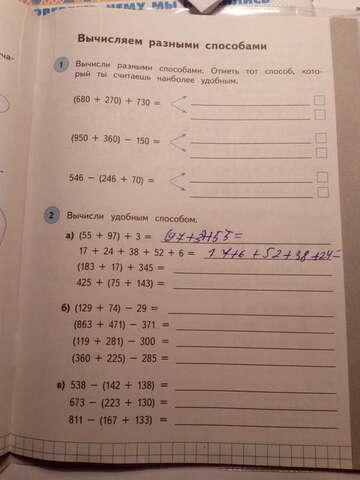 Вычисляем разными способами
1 Вычисли разными способами. Отметь тот способ, кото-
рый ты считаешь наиболее удобным.
(680 + 270) + 730 =
(950 + 360) − 150 =
546 − (246 + 70) =
2 Вычисли удобным способом.
а) (55 + 97) + 3 =
17 + 24 + 38 + 52 + 6 = 17+6 + 52+38+24=
(183 + 17) + 345 =
425 + (75 + 143) =
б) (129 + 74) − 29 =
(863 + 471) − 371 =
(119 + 281) − 300 =
(360 + 225) − 285 =
в) 538 − (142 + 138) =
673 − (223 + 130) =
811 − (167 + 133) =